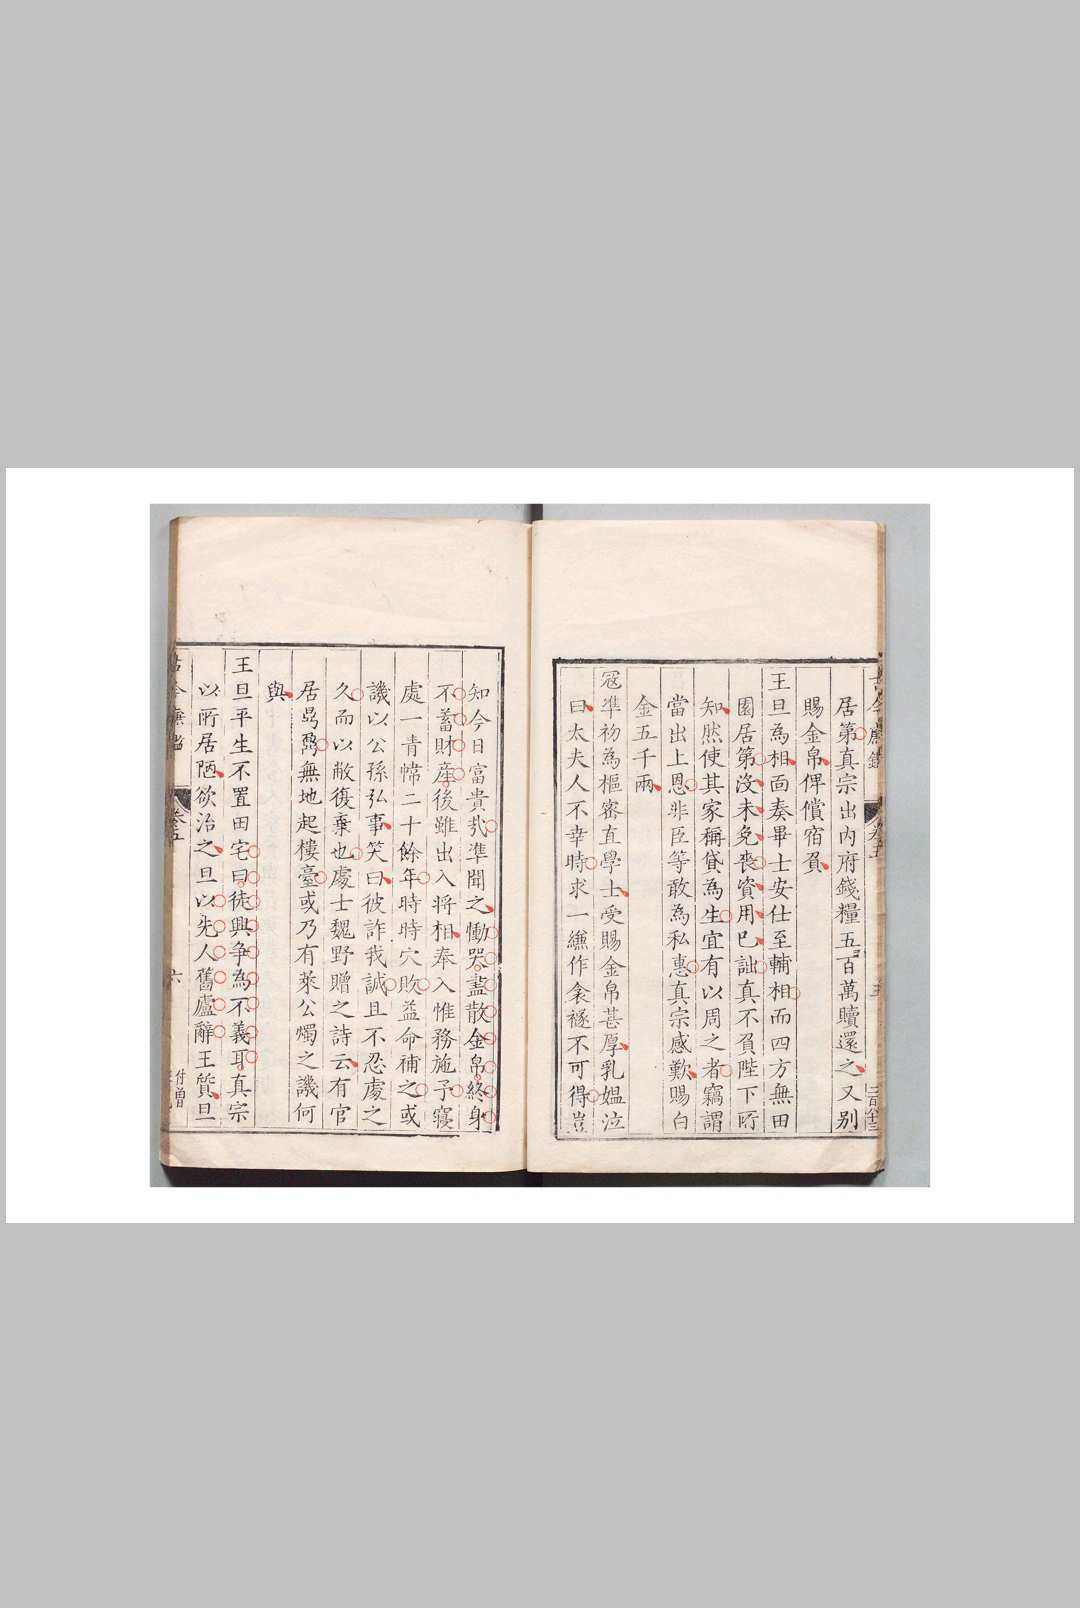 居第真宗出內府錢糧五百萬贖還之又別
賜金帛俾償宿負
王旦為相面奏畢士安仕至輔相而四方無田
園居第沒未免喪資用已詘真不負陛下所
知然使其家稱貸為生宜有以周之者竊謂
當出上恩非臣等敢為私惠真宗感歎賜白
金五千兩
寇準初為樞密直學士受賜金帛甚厚乳媼泣
曰太夫人不幸時求一縑作衾襚不可得豈
知今日富貴哉準聞之慟哭盡散金帛終身
不蓄財產後雖出入將相奉入惟務施予寢
處一青幃二十餘年時時穴敗益命補之或
譏以公孫弘事笑曰彼詐我誠且不忍處之
久而以敝復棄也處士魏野贈之詩云有官
居鼎鼐無地起樓臺或乃有萊公燭之譏何
與
王旦平生不置田宅曰徒興爭為不義耳真宗
以所居陋欲治之旦以先人舊廬辭王質旦
卷五
六